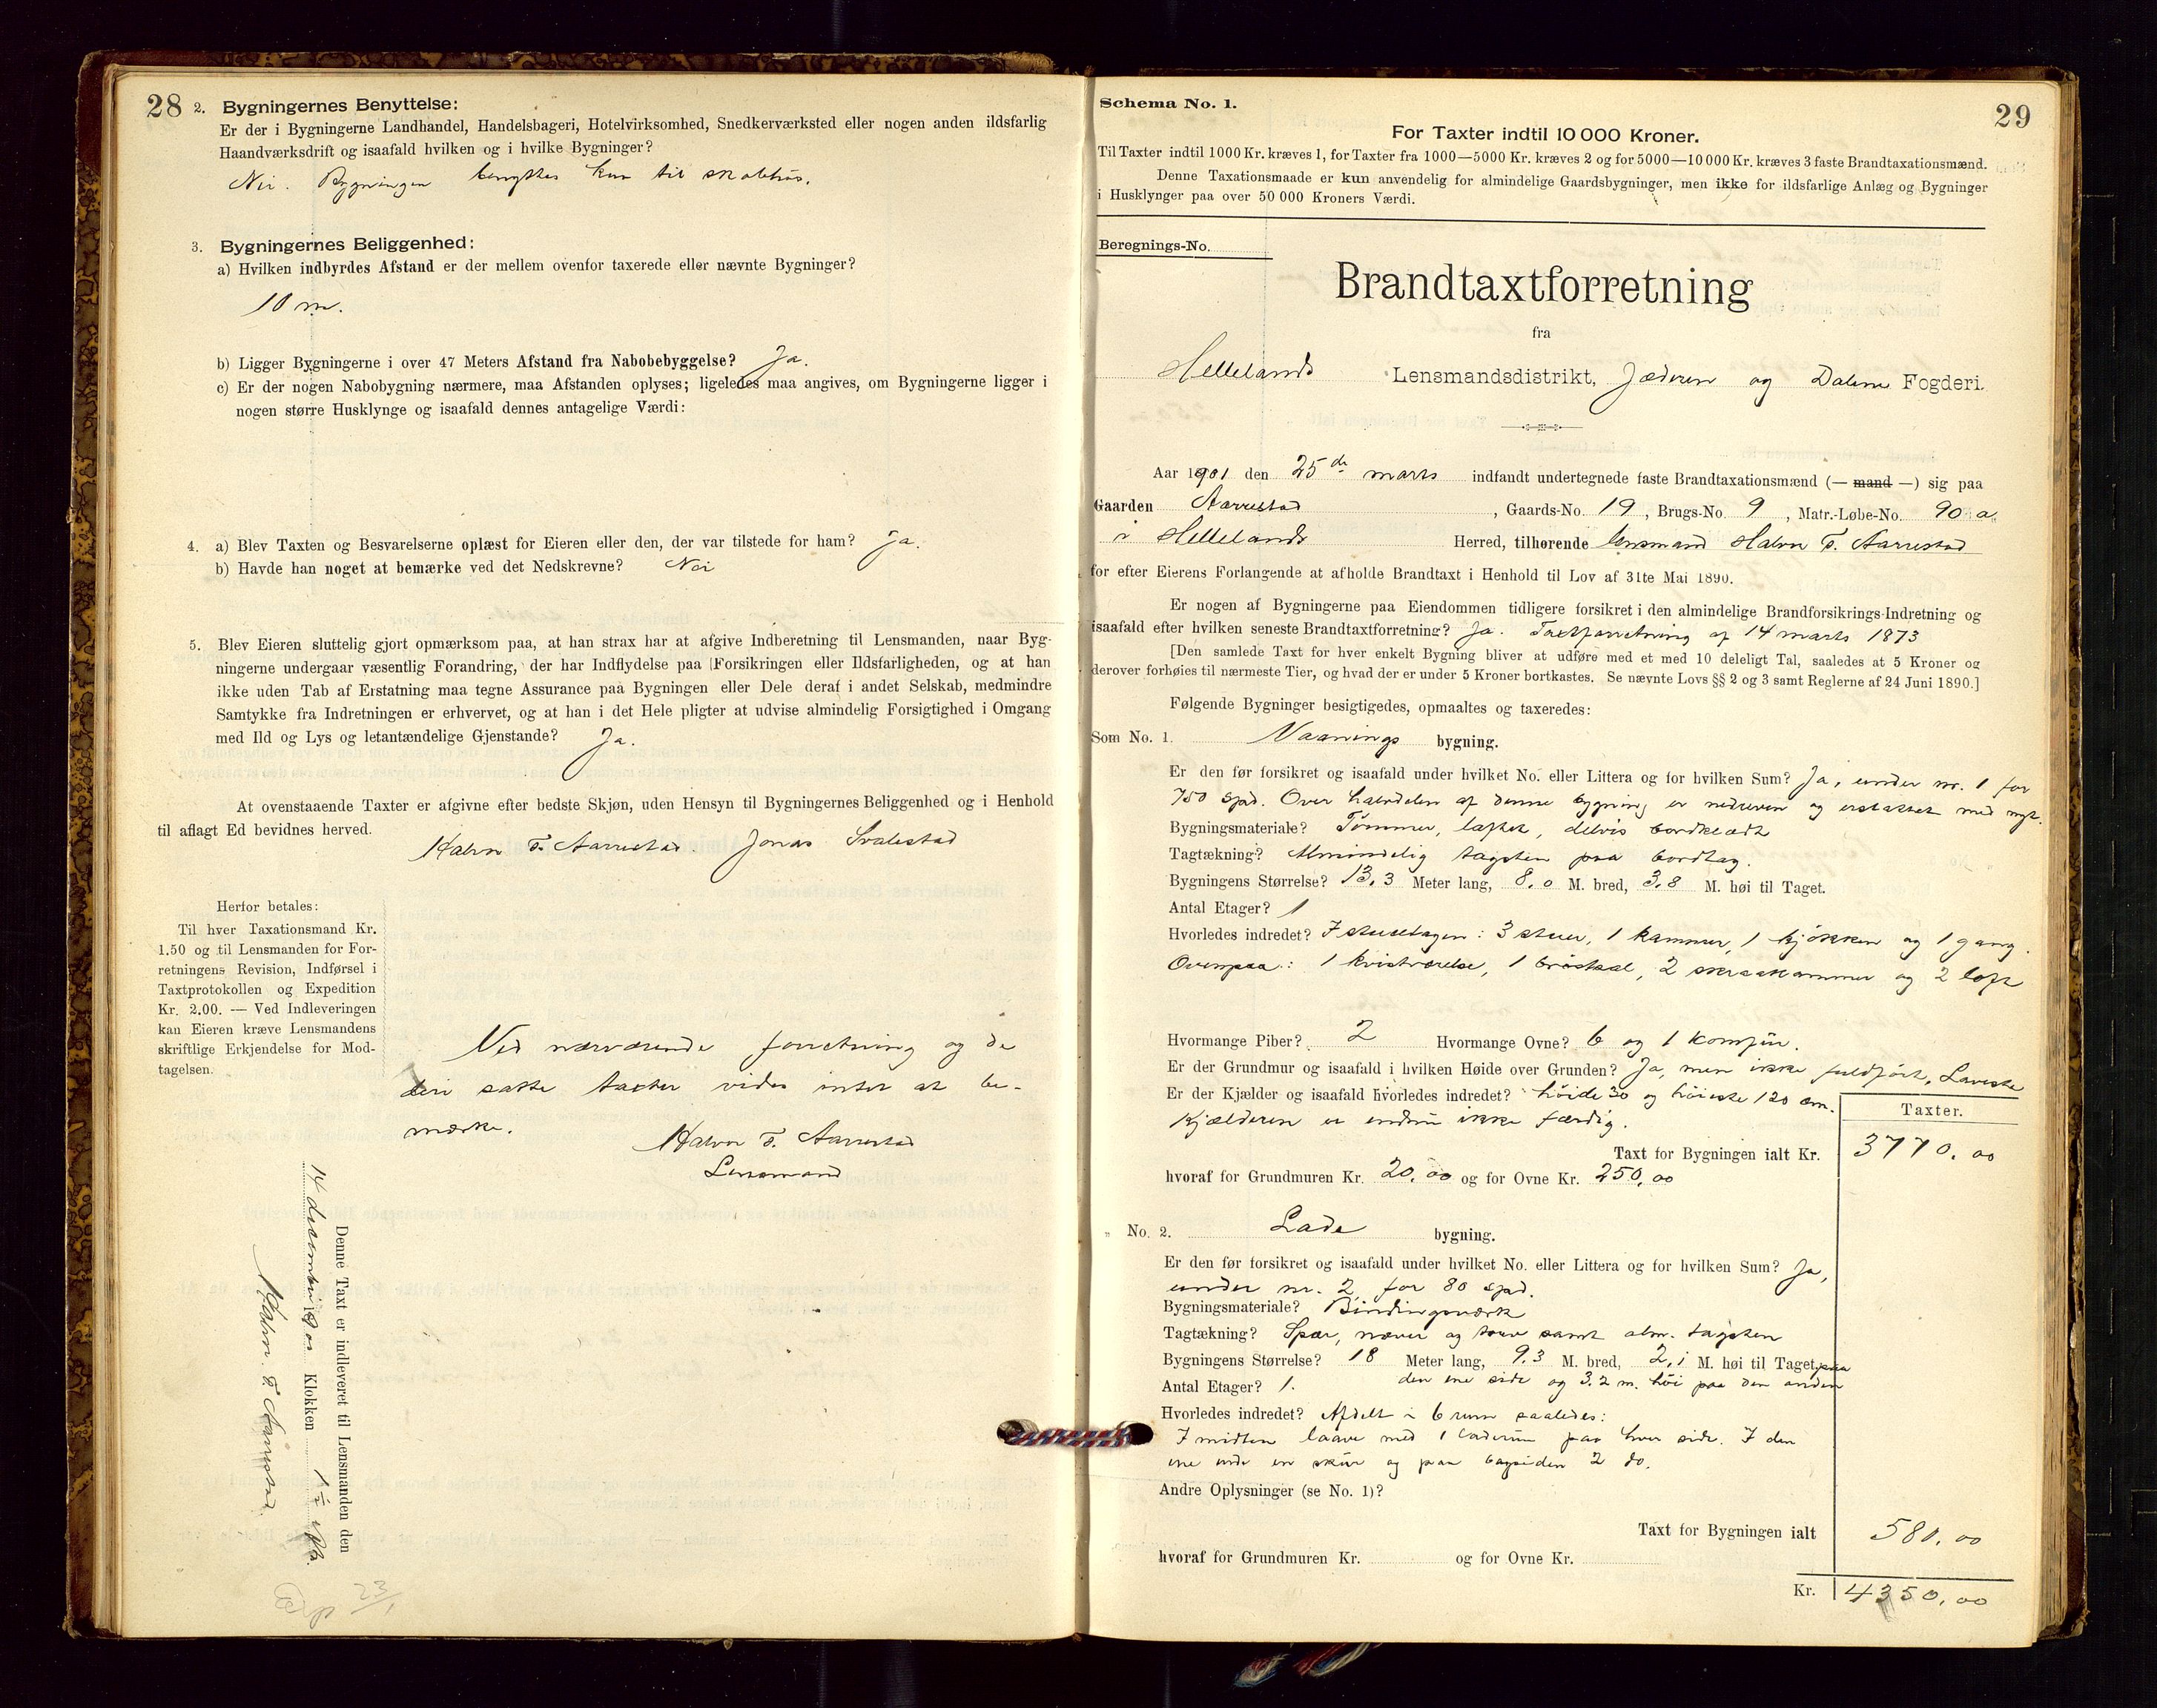 28
2. Bygningernes Benyttelse:
Er der i Bygningerne Landhandel, Handelsbageri, Hotelvirksomhed, Snedkerværksted eller nogen anden ildsfarlig
Haandværksdrift og isaafald hvilken og i hvilke Bygninger?
Nei. Bygningen benyttes kun til skolehus.
3. Bygningernes Beliggenhed:
a) Hvilken indbyrdes Afstand er der mellem ovenfor taxerede eller nævnte Bygninger?
10 m.
b) Ligger Bygningerne i over 47 Meters Afstand fra Nabobebyggelse? Ja.
c) Er der nogen Nabobygning nærmere, maa Afstanden oplyses; ligeledes maa angives, om Bygningerne ligger i
nogen større Husklynge og isaafald dennes antagelige Værdi:
4. a) Blev Taxten og Besvarelserne oplæst for Eieren eller den, der var tilstede for ham? Ja.
b) Havde han noget at bemærke ved det Nedskrevne? Nei
5. Blev Eieren sluttelig gjort opmærksom paa, at han strax har at afgive Indberetning til Lensmanden, naar Byg-
ningerne undergaar væsentlig Forandring, der har Indflydelse paa Forsikringen eller Ildsfarligheden, og at han
ikke uden Tab af Erstatning maa tegne Assurance paa Bygningen eller Dele deraf i andet Selskab, medmindre
Samtykke fra Indretningen er erhvervet, og at han i det Hele pligter at udvise almindelig Forsigtighed i Omgang
med Ild og Lys og letantændelige Gjenstande? Ja.
At ovenstaaende Taxter er afgivne efter bedste Skjøn, uden Hensyn til Bygningernes Beliggenhed og i Henhold
til aflagt Ed bevidnes herved.
Halvor T. Aarrestad. Jonas Svalestad
Herfor betales:
Til hver Taxationsmand Kr.
1.50 og til Lensmanden for For-
retningens Revision, Indførsel i
Taxtprotokollen og Expedition
Kr. 2.00. — Ved Indleveringen
kan Eieren kræve Lensmandens
skriftlige Erkjendelse for Mod-
tagelsen.
Ved nærværende forretning og de
deri satte taxter vides intet at be-
mærke.
Halvor T. Aarrestad
Lensmand
Denne Taxt er indleveret til Lensmanden den
14 december 1900 Klokken
Halvor T. Aarrestad
23/1
29
Schema No. 1.
For Taxter indtil 10 000 Kroner.
Til Taxter indtil 1000 Kr. kræves 1, for Taxter fra 1000—5000 Kr. kræves 2 og for 5000—10 000 Kr. kræves 3 faste Brandtaxationsmænd.
Denne Taxationsmaade er kun anvendelig for almindelige Gaardsbygninger, men ikke for ildsfarlige Anlæg og Bygninger
i Husklynger paa over 50 000 Kroners Værdi.
Beregnings-No.
Brandtaxtforretning
fra
Hellelands Lensmandsdistrikt, Jæderen og Dalene Fogderi.
Aar 1901 den 25de marts indfandt undertegnede faste Brandtaxationsmænd (— mand —) sig paa
Gaarden Aarrestad, Gaards-No. 19, Brugs-No. 9, Matr.-Løbe-No. 90 a
i Hellelands Herred, tilhørende lensmand Halvor T. Aarrestad
for efter Eierens Forlangende at afholde Brandtaxt i Henhold til Lov af 31te Mai 1890.
Er nogen af Bygningerne paa Eiendommen tidligere forsikret i den almindelige Brandforsikrings-Indretning og
isaafald efter hvilken seneste Brandtaxtforretning? Ja. Taxtforretning af 14 marts 1873
[Den samlede Taxt for hver enkelt Bygning bliver at udføre med et med 10 deleligt Tal, saaledes at 5 Kroner og
derover forhøies til nærmeste Tier, og hvad der er under 5 Kroner bortkastes. Se nævnte Lovs §§ 2 og 3 samt Reglerne af 24 Juni 1890.]
Følgende Bygninger besigtigedes, opmaaltes og taxeredes:
Som No. 1. Vaanings bygning.
Er den før forsikret og isaafald under hvilket No. eller Littera og for hvilken Sum? Ja, under nr. 1 for
750 spd. Over halvdelen af denne bygning er nedreven og erstattet med nyt.
Bygningsmateriale? Tømmer, laftet, delvis bordklædt
Tagtækning? Almindelig tagsten paa bordtag.
Bygningens Størrelse? 13,3 Meter lang, 8,0 M. bred, 3,8 M. høi til Taget.
Antal Etager? 1
Hvorledes indredet? I stuetagen: 3 stuer, 1 kammer, 1 kjøkken og 1 gang.
Ovenpaa: 1 kvistværelse, 1 , 2 skraakammer og 2 loft
Hvormange Piber? 2 Hvormange Ovne? 6 og 1 komfur.
Er der Grundmur og isaafald i hvilken Høide over Grunden? Ja, men ikke fuldført. Laveste
Er der Kjælder og isaafald hvorledes indredet? høide 30 og høieste 120 cm.
Kjælderen er endnu ikke færdig.
Taxter.
Taxt for Bygningen ialt Kr. 3770,00
hvoraf for Grundmuren Kr. 20,00 og for Ovne Kr. 250,00
„ No. 2. Lade bygning.
Er den før forsikret og isaafald under hvilket No. eller Littera og for hvilken Sum? Ja,
under nr. 2 for 80 spd.
Bygningsmateriale? Bindingsværk
Tagtækning? Spær, næver og torv samt alm. tagsten
Bygningens Størrelse? 18 Meter lang, 9,3 M. bred, 2,1 M. høi til Taget paa
den ene side og 3.2 m. høi paa den anden
Antal Etager? 1.
Hvorledes indredet? Afdelt i 6 rum saaledes:
I midten laave med 1 laderum paa hver side. I den
ene ende en skur og paa bagsiden 2 do.
Andre Oplysninger (se No. 1)?
Taxt for Bygningen ialt 580,00
hvoraf for Grundmuren Kr. og for Ovne Kr.
Kr. 4350,00